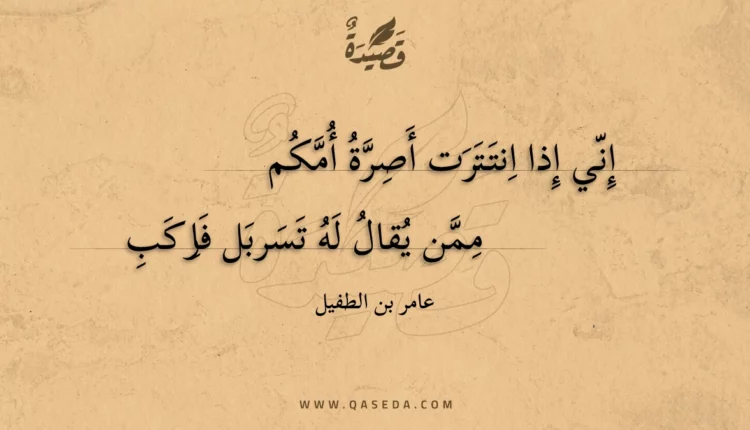 قَصِيدَةٌ
إِنّي إِذا اِنتَتَرَت أَصِرَّةُ أُمَّكُم
مِمَّن يُقالُ لَهُ تَسَربَل فَاِركَبِ
عامر بن الطفيل
WWW.QASEDA.COM